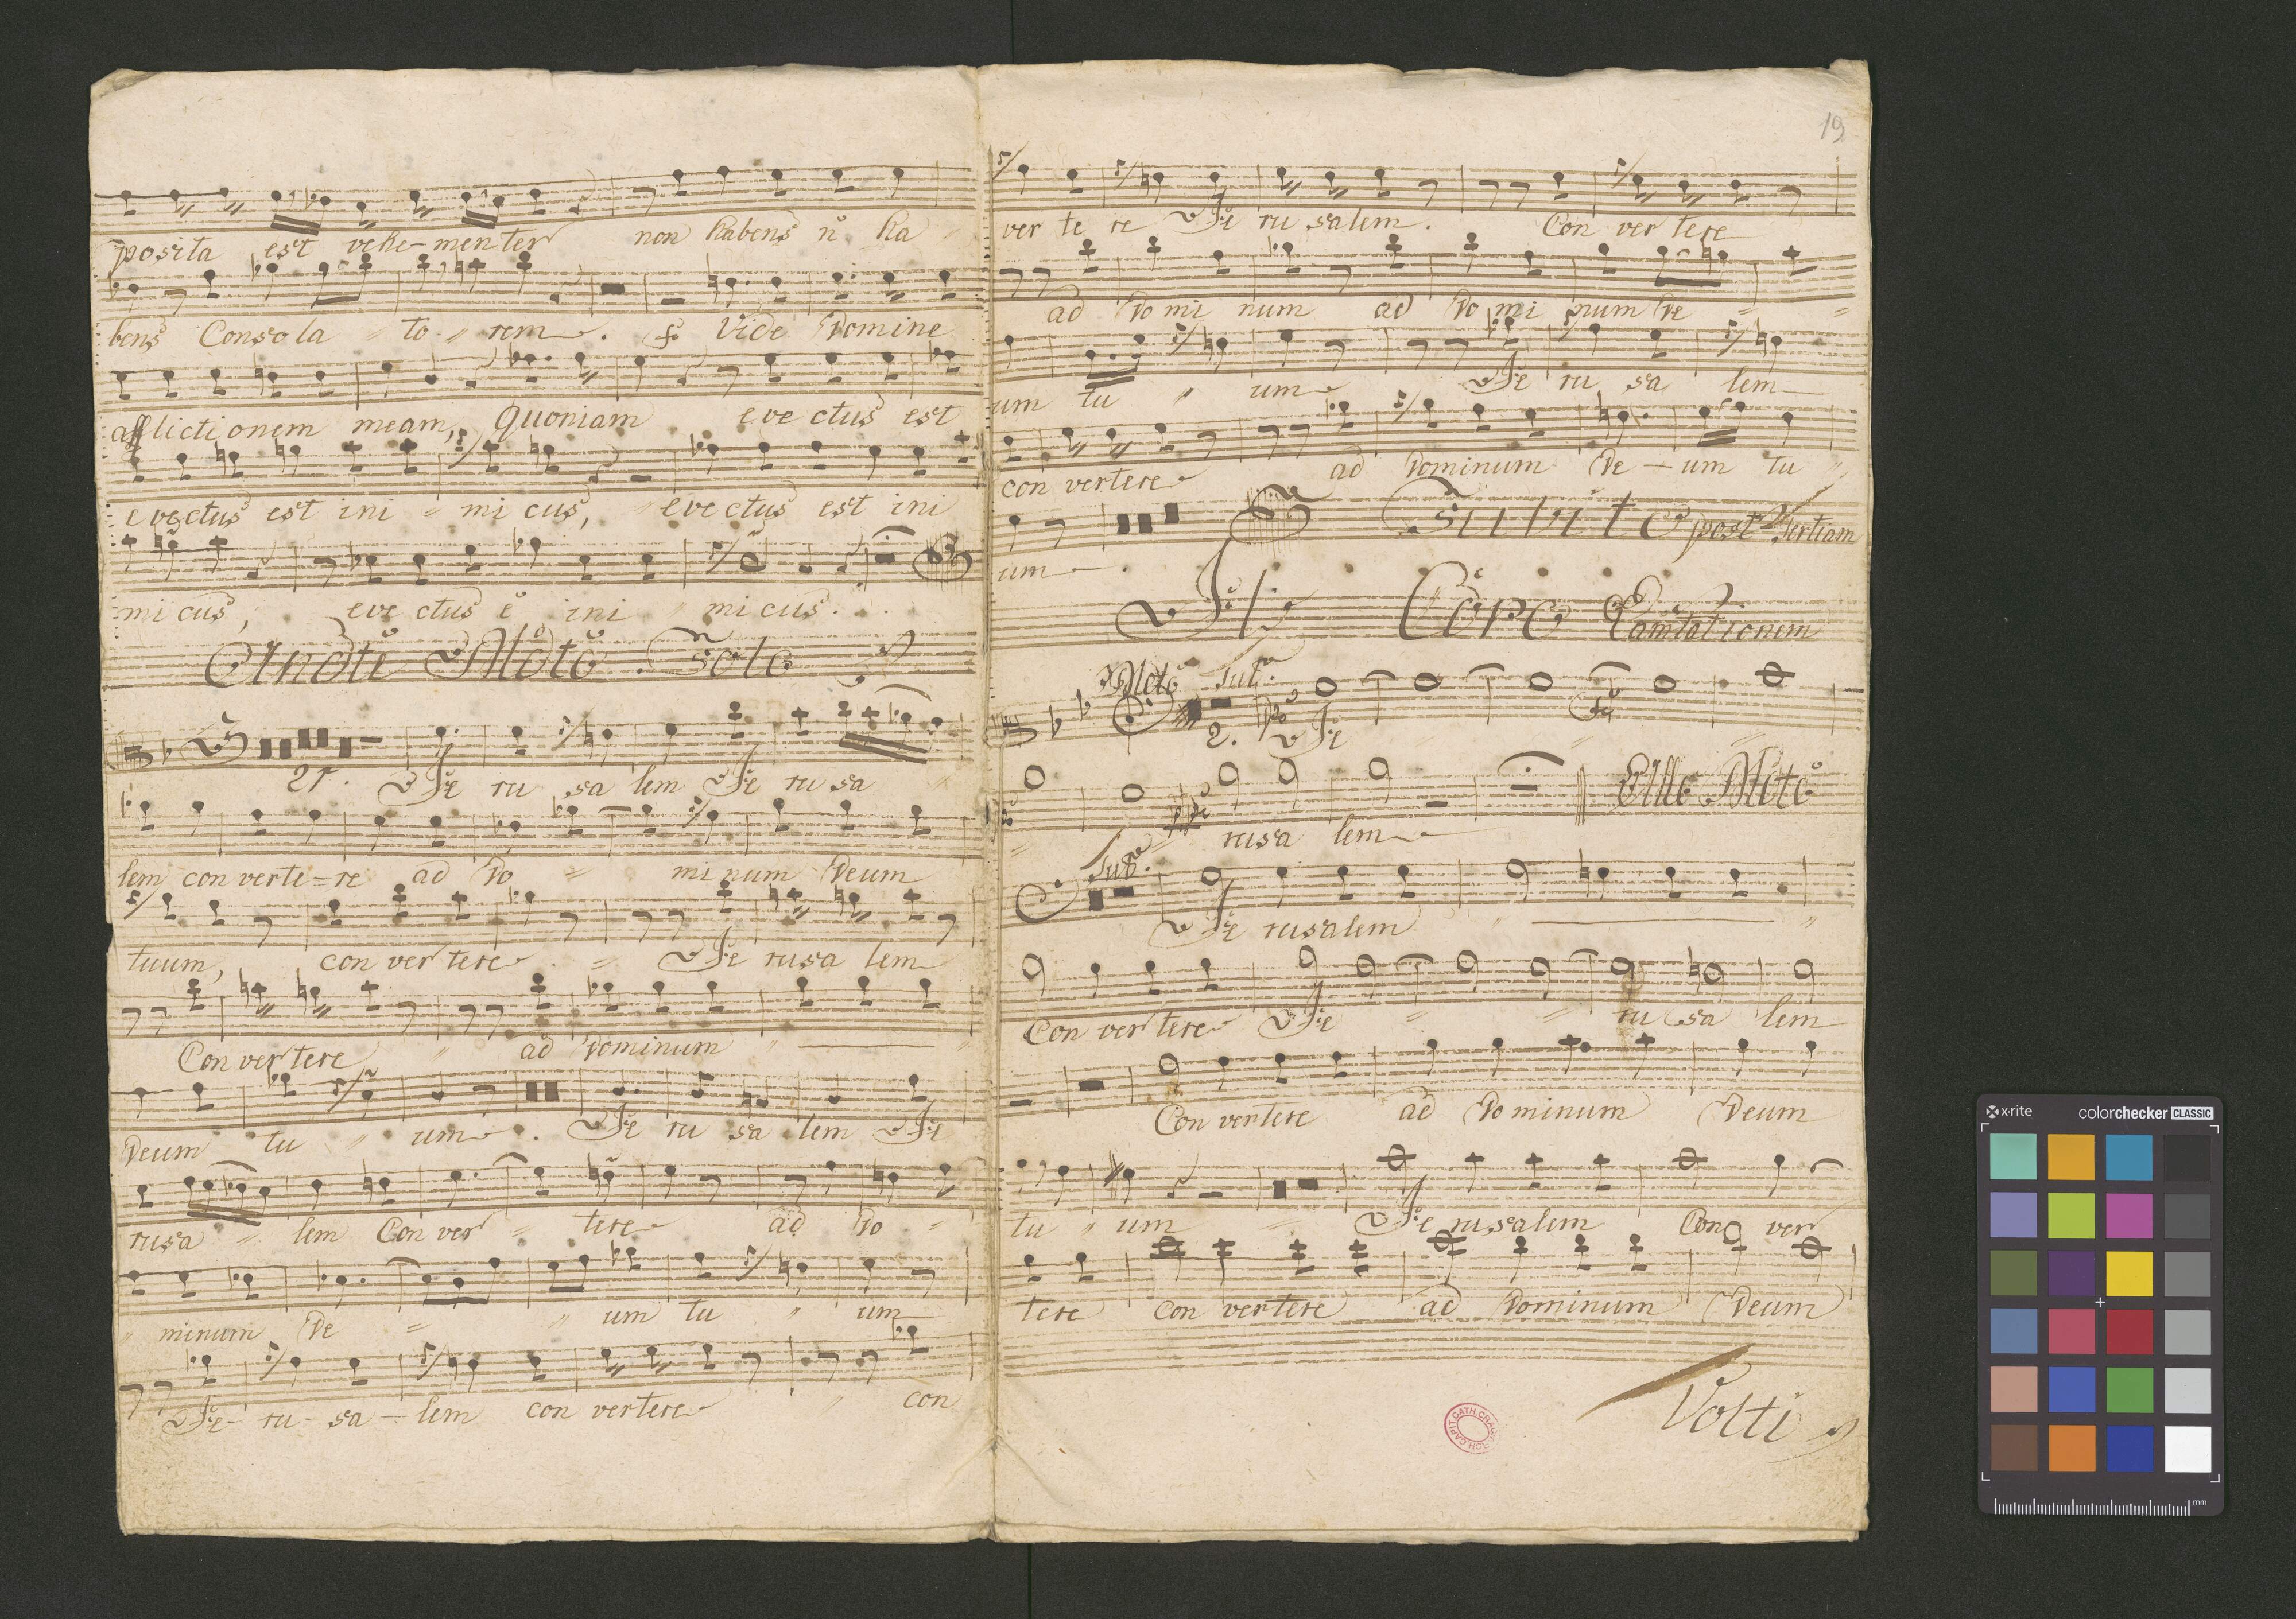 posita est vehe-menter non habens n ha
bens Conso la - to - rem. f. Vide Domine
afflicti onem meam, Quoniam eve ctus est
evectus est ini - mi cus, eve ctus est ini
mi cus, eve ctus e ini mi cus.
Andte Molto Solo
21. Je ru sa lem Je ru sa
lem con verte = re ad Do = mi num Deum
tuum, con ver tere = Je rusa lem
Con ver tere ad Dominum
Deum tu um. Je ru sa lem Je
rusa lem Con ver = tere ad Do -
minum De = um tu um
Je - ru - sa - lem con vertere con
19
ver te re Je ru salem. Con ver tere
ad Do mi num ad Do mi num De = =
um tu um Je ru sa lem
con vertere ad Dominum De - um tu
Subito post Tertiam
um
Coro Lamtationem
Molto
2. Je
Allo Molto
rusa lem
Je rusalem
Con ver tere Je = = ru sa lem
Con vertere ad Do minum Deum
tu um Je rusalem Con ver
tere con vertere ad Dominum Deum
Volti
x-rite colorchecker CLASSIC
mm